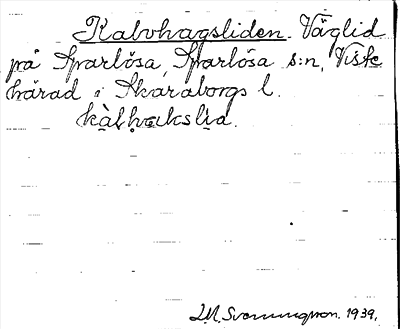 Kalvhagsliden. Väglid
på Sparlösa, Sparlösa s:n, Viste
härad i Skaraborgs l.
kàlhvakslia.
J.M. Svenungsson. 1939.